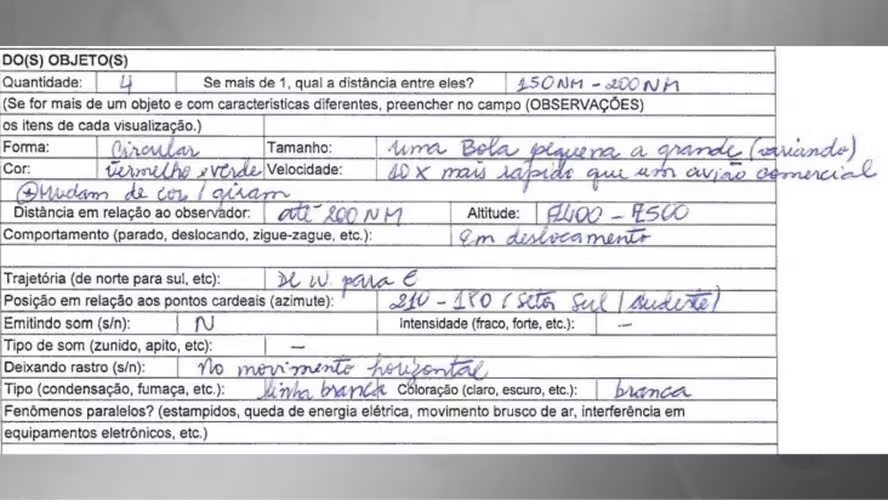 DO(S) OBJETO(S)
Quantidade: 4 Se mais de 1, qual a distância entre eles? 150NM - 200NM
(Se for mais de um objeto e com caracteristicas diferentes, preencher no campo (OBSERVAÇÕES)
os itens de cada visualização.)
Forma: Circular Tamanho: uma Bola pequena a grande (variando)
Cor: vermelho e verde Velocidade: 10 x mais rápido que um avião comercial
+ Mudam de cor / giram
Distância em relação ao observador: até 200 NM Altitude: - 
Comportamento (parado, deslocando, zigue-zague, etc.): Em deslocamento
Trajetória (de norte para sul, etc): De W para E
Posição em relação aos pontos cardeais (azimute): 210 - 180 (setor Sul / sudeste)
Emitindo som (s/n): N Intensidade (fraco, forte, etc.): -
Tipo de som (zunido, apito, etc): -
Deixando rastro (s/n): No movimento horizontal
Tipo (condensação, fumaça, etc.): linha branca Coloração (claro, escuro, etc.): branca
Fenômenos paralelos? (estampidos, queda de energia elétrica, movimento brusco de ar, interferência em
equipamentos eletrônicos, etc.)